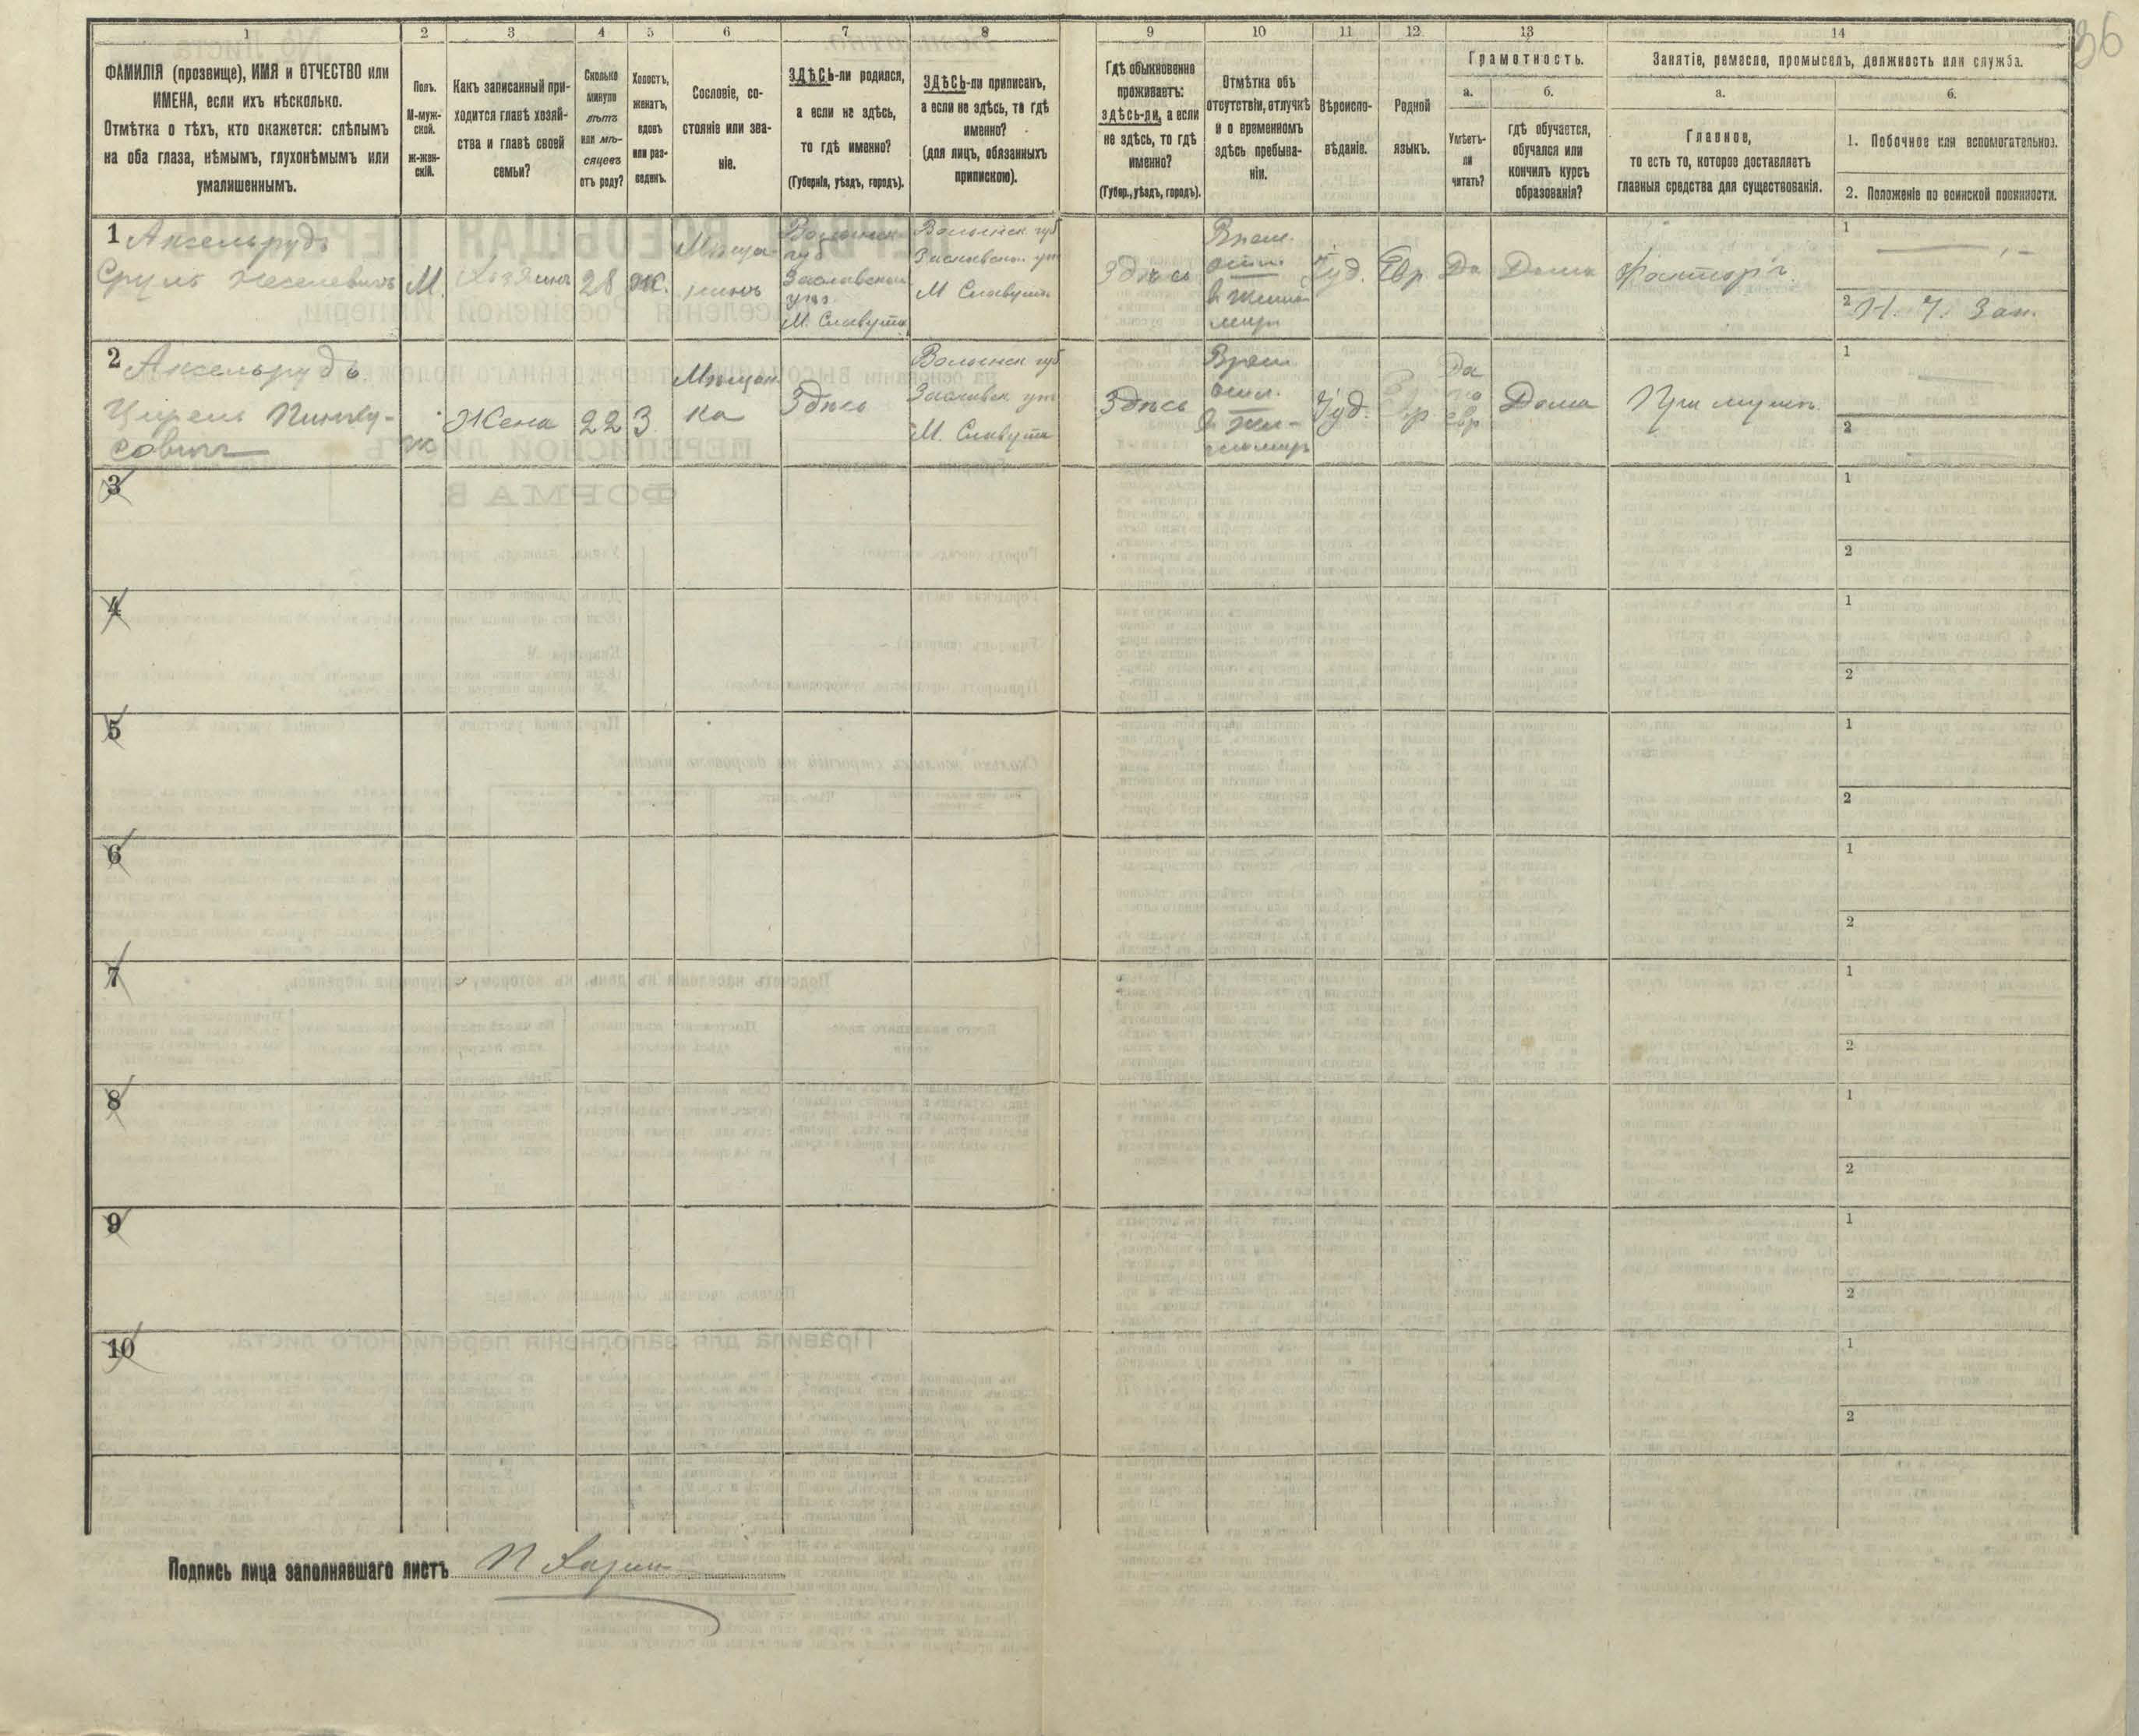 36
1 2 3 4 5 6 7 8 9 10 11 12 13 14
ФАМИЛІЯ (прозвище), ИМЯ и ОТЧЕСТВО или
ИМЕНА, если ихъ нѣсколько.
Отмѣтка о тѣхъ, кто окажется: слѣпымъ
на оба глаза, нѣмымъ, глухонѣмымъ или
умалишеннымъ.
Полъ.
М-муж-
ской.
Ж-жен-
скій.
Какъ записанный при-
ходится главѣ хозяй-
ства и главѣ своей
семьи?
Сколько
минуло
лѣтъ
или мѣ-
сяцевъ
отъ роду?
Холостъ,
женатъ,
вдовъ
или раз-
веденъ.
Сословіе, со-
стояніе или зва-
ніе.
ЗДѢСЬ-ли родился,
а если не здѣсь,
то гдѣ именно?
(Губернія, уѣздъ, городъ).
ЗДѢСЬ-ли приписанъ,
а если не здѣсь, то гдѣ
именно?
(для лицъ, обязанныхъ
припискою).
Гдѣ обыкновенно
проживаетъ:
здѣсь-ли, а если
не здѣсь, то гдѣ
именно?
(Губер., уѣздъ, городъ).
Отмѣтка объ
отсутствіи, отлучкѣ
и о временномъ
здѣсь пребыва-
ніи.
Вѣроиспо-
вѣданіе.
Родной
языкъ.
Грамотность.
а.
Умѣетъ-
ли
читать?
б.
гдѣ обучается,
обучался или
кончилъ курсъ
образованія?
Занятіе, ремесло, промыселъ, должность или служба.
а.
Главное,
то есть то, которое доставляетъ
главныя средства для существованія.
б.
1. Побочное или вспомогательное.
2. Положеніе по воинской повинности.
1 Аксельрудъ
Сруль Хеселевичъ
М.
Хозяинъ
28
Ж.
Мѣща-
нинъ
Волынск
губ
Заславскаго
уѣз
М. Славута
Волынск губ
Заславскаго ует
М Славута
Здѣсь
Врем.
отл.
в Жито
мир
Іуд.
Евр
Да
Дома
Факторъ
1
2 Н. Ч. Зап.
2 Аксельрудъ
Цирель Пинку-
совичъ
Ж
Жена
22
З
Мѣщан
ка
Здѣсь
Волынск губ
Заславск ует
М. Славута
Здѣсь
Врем
отл.
в Жи-
томир
Іуд.
Евр
Да
по
евр
Дома
При мужѣ
1
2
3
1
2
4
1
2
5
1
2
6
1
2
7
1
2
8
1
2
9
1
2
10
1
2
Подпись лица заполнявшаго листъ